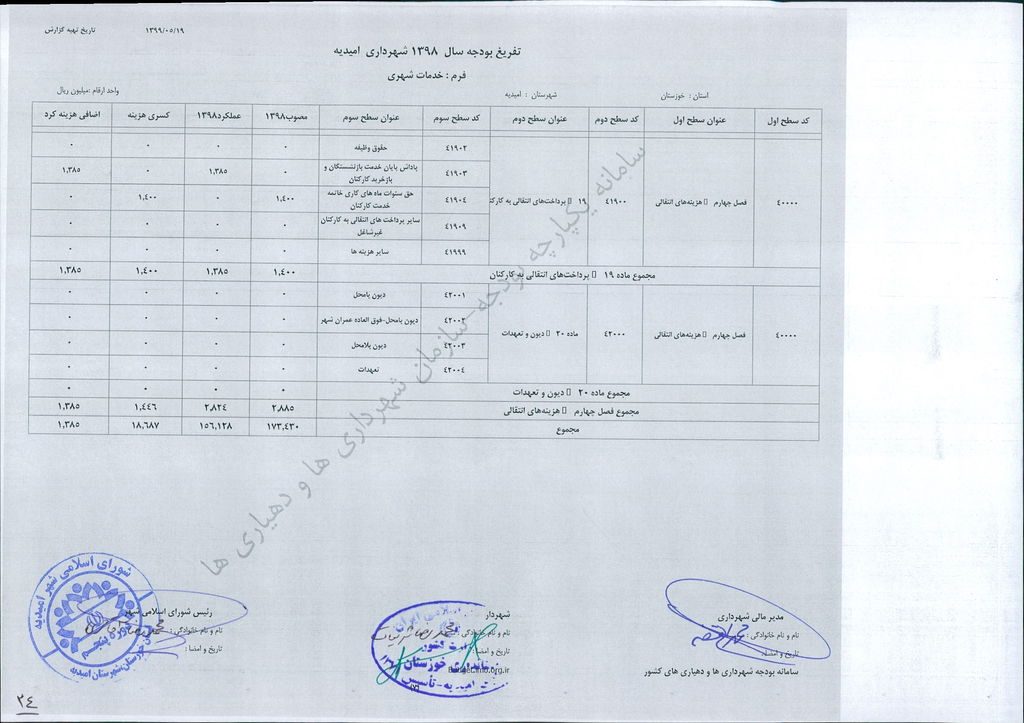 تاریخ تهیه گزارش ۱۳۹۹/۰۵/۱۹
تفریغ بودجه سال ۱۳۹۸ شهرداری امیدیه
فرم : خدمات شهری
استان : خوزستان شهرستان : امیدیه واحد ارقام :میلیون ریال
کد سطح اول عنوان سطح اول کد سطح دوم عنوان سطح دوم کد سطح سوم عنوان سطح سوم مصوب۱۳۹۸ عملکرد۱۳۹۸ کسری هزینه اضافی هزینه کرد
۴۰۰۰۰ فصل چهارم ▯ هزینه‌های انتقالی ۴۱۹۰۰ ۱۹ ▯ پرداخت‌های انتقالی به کارکنا
۴۱۹۰۲ حقوق وظیفه ۰ ۰ ۰ ۰
۴۱۹۰۳ پاداش پایان خدمت بازنشستگان و بازخرید کارکنان ۰ ۱,۳۸۵ ۰ ۱,۳۸۵
۴۱۹۰۴ حق سنوات ماه های کاری خاتمه خدمت کارکنان ۱,۴۰۰ ۰ ۱,۴۰۰ ۰
۴۱۹۰۹ سایر پرداخت های انتقالی به کارکنان غیرشاغل ۰ ۰ ۰ ۰
۴۱۹۹۹ سایر هزینه ها ۰ ۰ ۰ ۰
مجموع ماده ۱۹ ▯ پرداخت‌های انتقالی به کارکنان ۱,۴۰۰ ۱,۳۸۵ ۱,۴۰۰ ۱,۳۸۵
۴۰۰۰۰ فصل چهارم ▯ هزینه‌های انتقالی ۴۲۰۰۰ ماده ۲۰ ▯ دیون و تعهدات
۴۲۰۰۱ دیون بامحل ۰ ۰ ۰ ۰
۴۲۰۰۲ دیون بامحل-فوق العاده عمران شهر ۰ ۰ ۰ ۰
۴۲۰۰۳ دیون بلامحل ۰ ۰ ۰ ۰
۴۲۰۰۴ تعهدات ۰ ۰ ۰ ۰
مجموع ماده ۲۰ ▯ دیون و تعهدات ۰ ۰ ۰ ۰
مجموع فصل چهارم ▯ هزینه‌های انتقالی ۲,۸۸۵ ۲,۸۲۴ ۱,۴۴۶ ۱,۳۸۵
مجموع ۱۷۳,۴۳۰ ۱۵۶,۱۲۸ ۱۸,۶۸۷ ۱,۳۸۵
سامانه یکپارچه بودجه-سازمان شهرداری ها و دهیاری ها
مدیر مالی شهرداری
نام و نام خانوادگی :
تاریخ و امضا :
شهردار
نام و نام خانوادگی :
تاریخ و امضا :
رئیس شورای اسلامی شهر
نام و نام خانوادگی :
تاریخ و امضا :
سامانه بودجه شهرداری ها و دهیاری های کشور
شورای اسلامی شهر امیدیه
دوره پنجم
خوزستان شهرستان امیدیه
استانداری خوزستان
۲۴